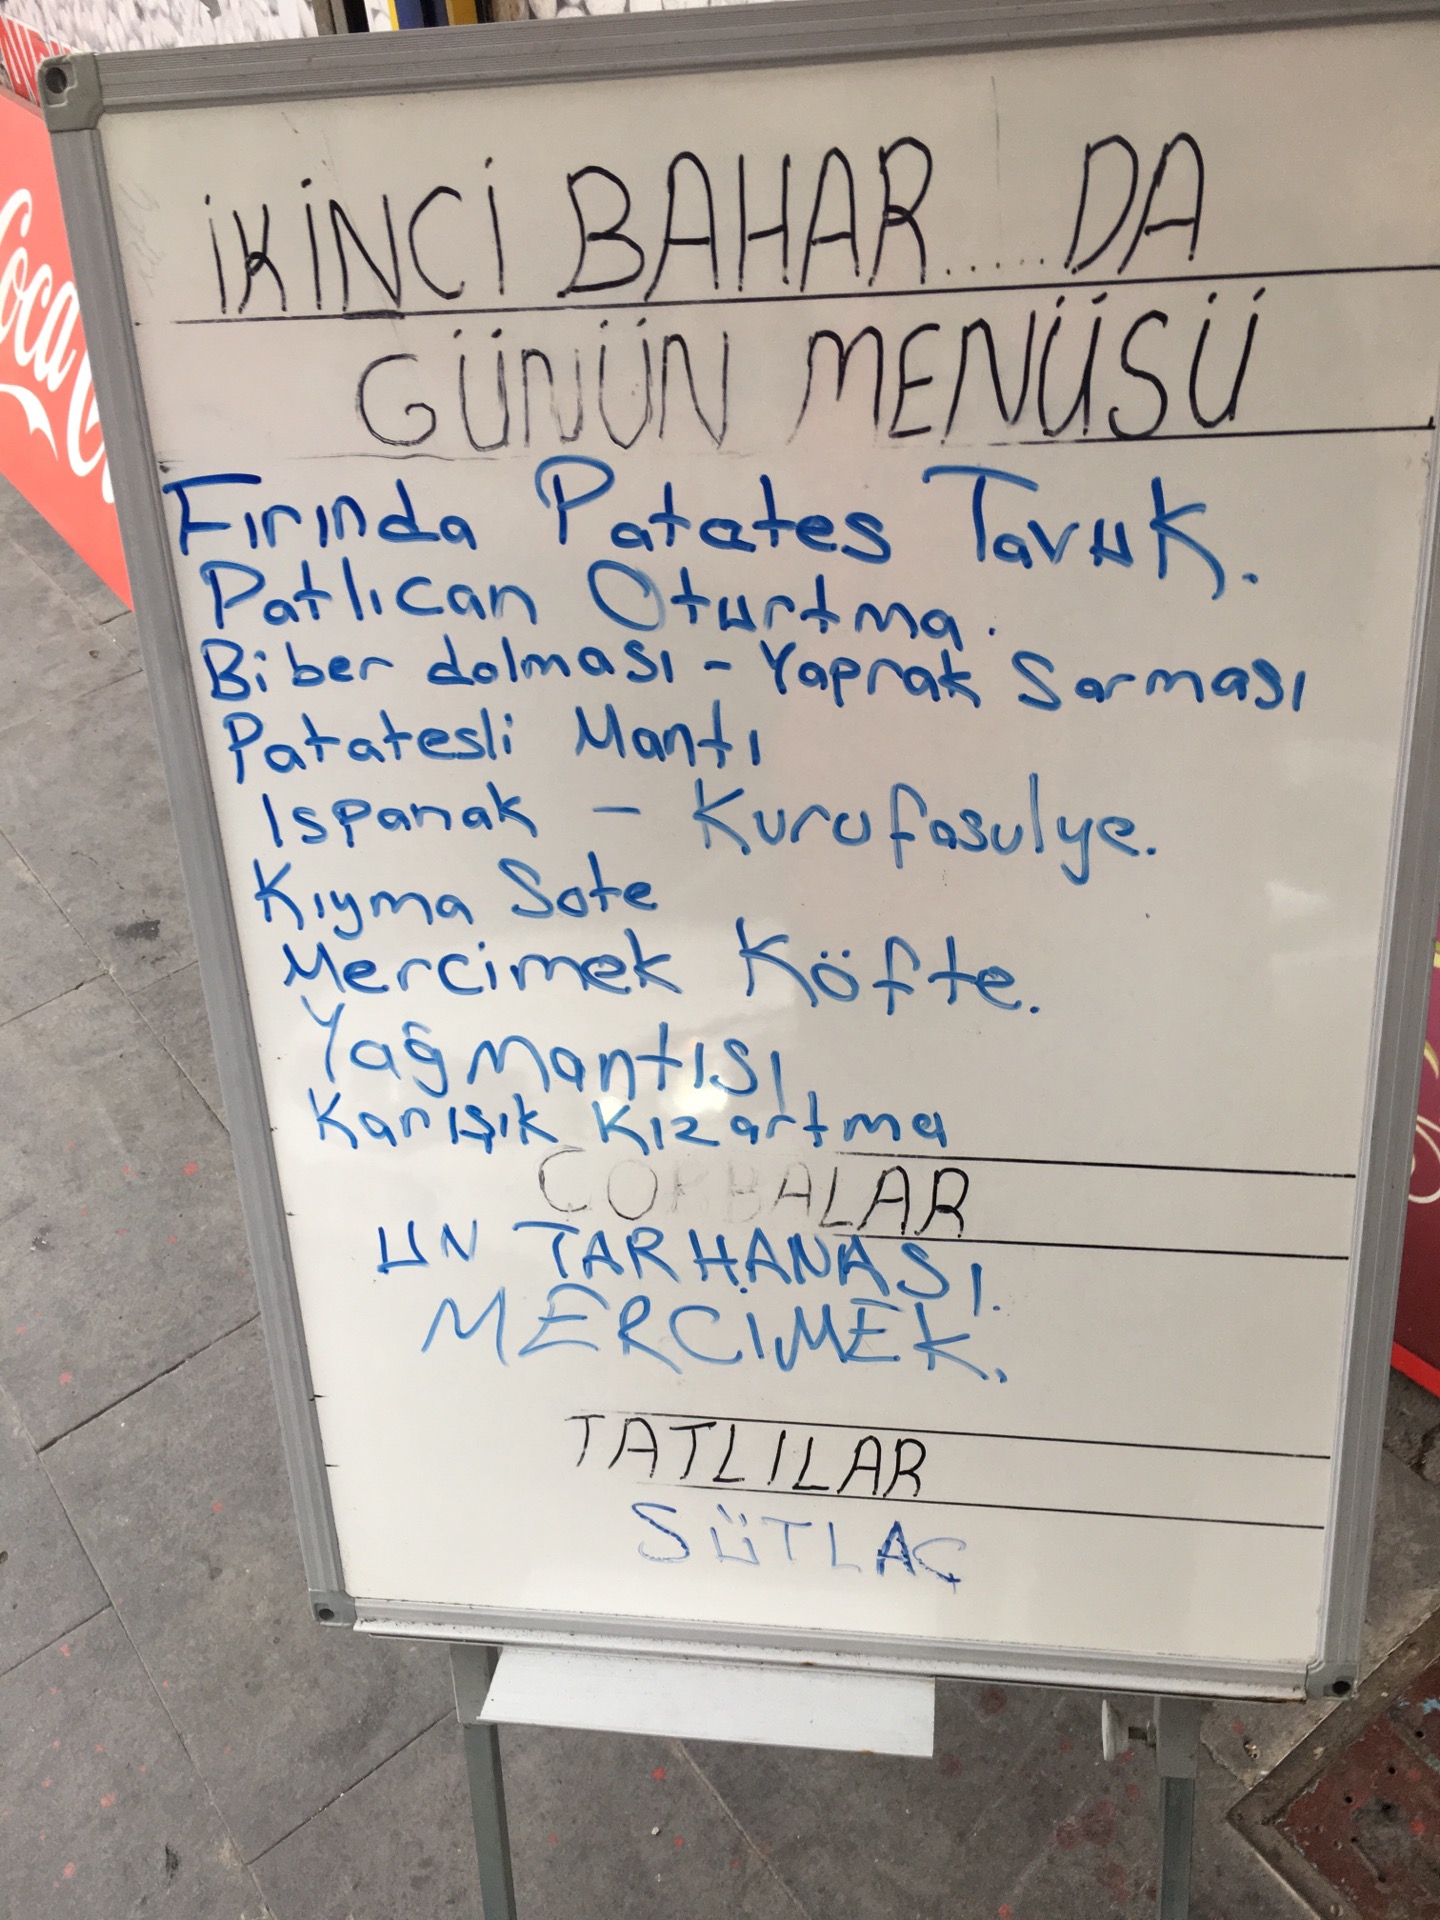 İKİNCİ BAHAR......DA
GÜNÜN MENÜSÜ
Fırında Patates Tavuk.
Patlıcan Oturtma.
Biber dolması - Yaprak Sarması
Patatesli Mantı
Ispanak - Kurufasulye.
Kıyma Sote
Mercimek Köfte.
Yağ Mantısı
Karışık Kızartma
ÇORBALAR
UN TARHANASI.
MERCİMEK.
TATLILAR
SÜTLAÇ
Coca